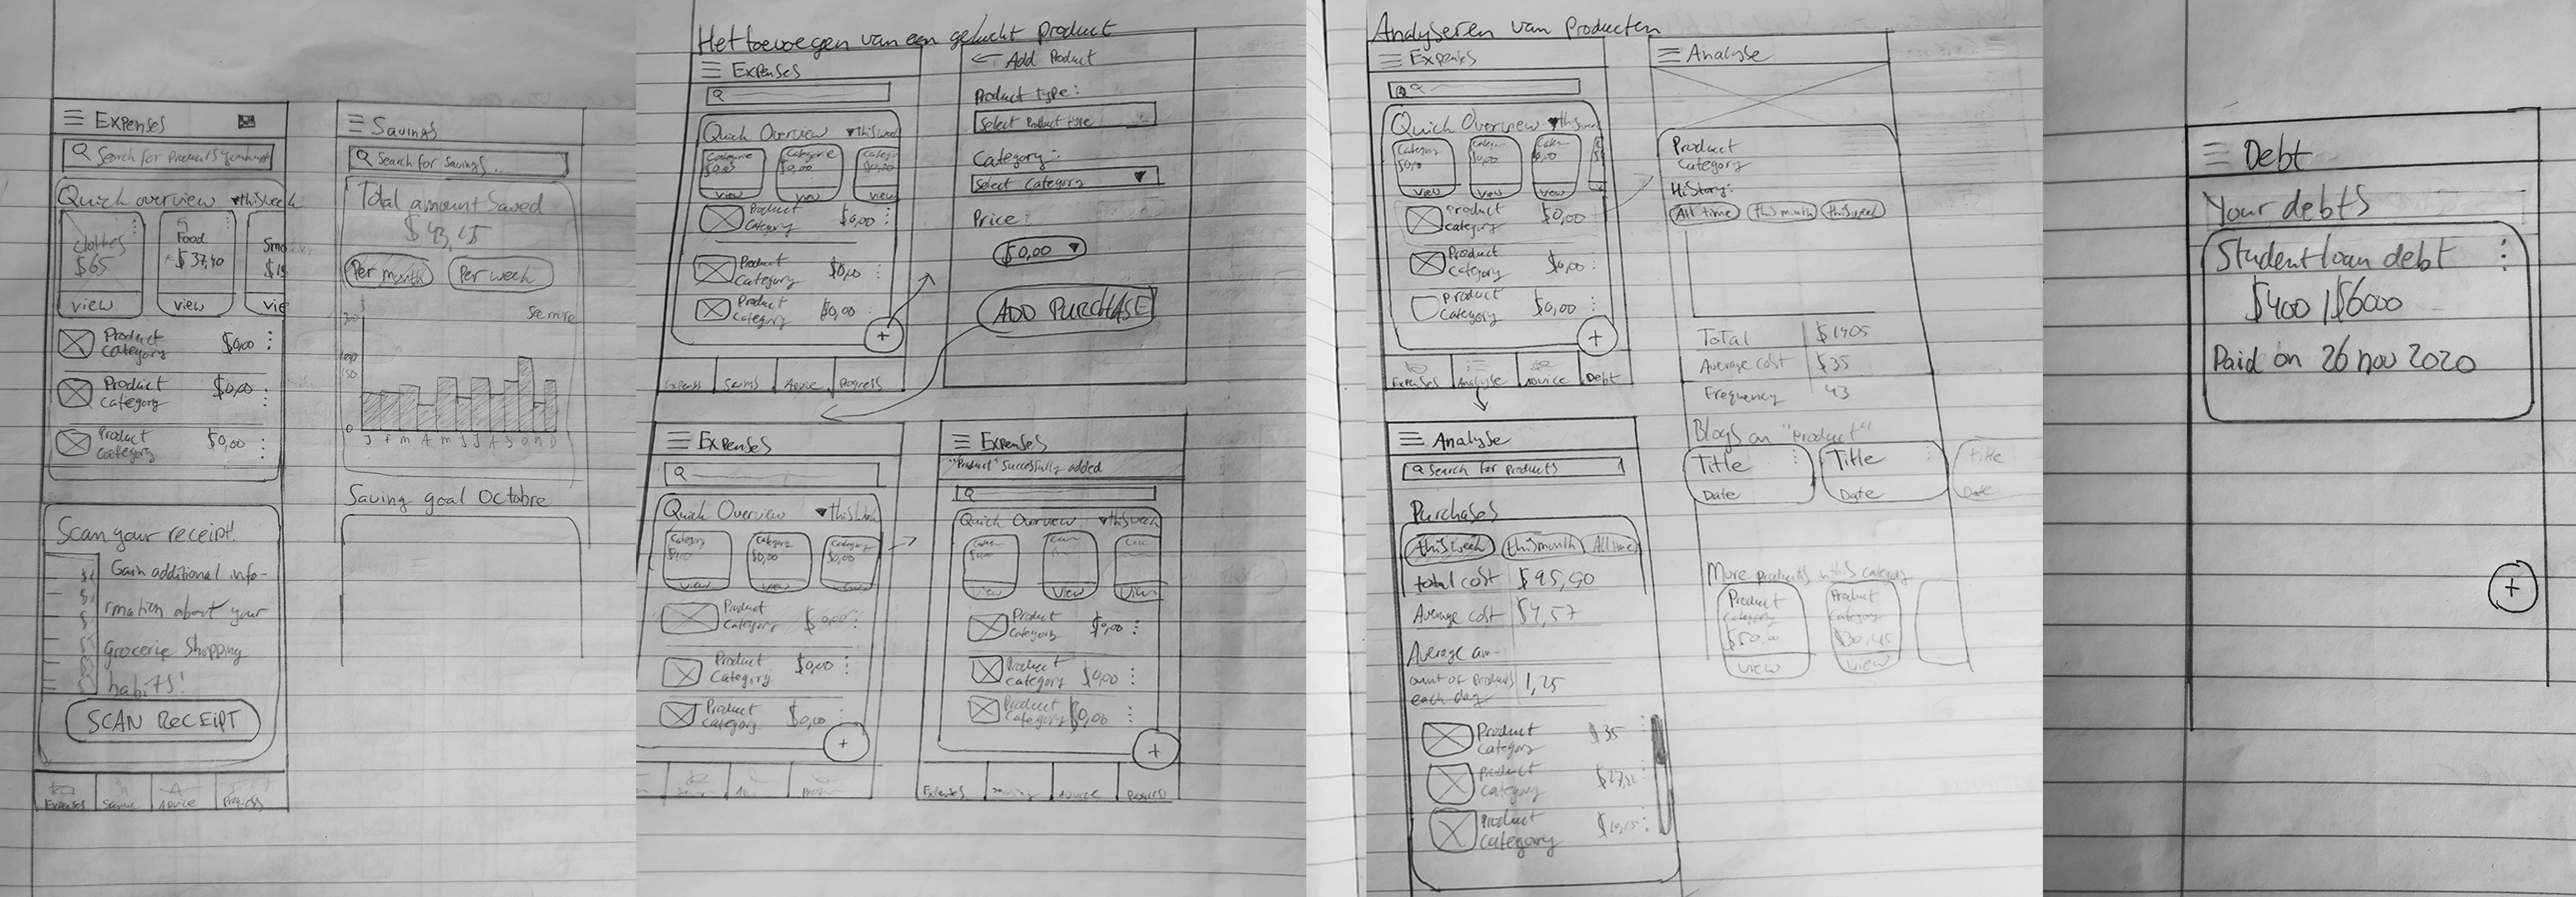 Expenses
Search for products
Quick overview ▾this week
Clothes
$65
view
Food
$37,40
view
Product
category
$0,00
Product
category
$0,00
Product
category
$0,00
Scan your receipt!
Gain additional info-
rmation about your
grocerie shopping
habits!
SCAN RECEIPT
Expenses
Advice
Progress
Savings
Search for savings...
Total amount saved
$43,15
Per month
Per week
See more
0
J F M A M J J A S O N D
Saving goal Octobre
Het toevoegen van een gekocht product
Expenses
Quick Overview ▾this week
Categorie
$0,00
view
Categorie
$0,00
view
view
Product
Category
$0,00
Product
Category
$0,00
Product
Category
$0,00
+
Expenses
Savings
Advice
Progress
← Add Product
Product type:
Select Product type
Category:
Select Category ▾
Price:
$0,00 ▾
ADD PURCHASE
Expenses
Quick Overview ▾this week
Category
view
Category
$0,00
view
Category
$0,00
Product
Category
$0,00
Product
Category
$0,00
Product
Category
$0,00
+
Expenses
"Product" Successfully added
Quick Overview ▾this week
View
View
View
Product
Category
$0,00
Product
Category
$0,00
Product
Category
$0,00
+
Expenses
Progress
Analyseren van producten
Expenses
Quick Overview ▾this week
Category
$0,00
view
$0,00
view
$0,00
view
Product
category
$0,00
Product
Category
$0,00
Product
Category
$0,00
+
Expenses
Analyse
Advice
Debt
Analyse
Product
Category
History:
All time
this month
this week
Total $1405
Average cost $35
Frequency 43
Blogs on "Product"
Title
Date
Title
Date
Title
Date
More products in this category
Product
Category
view
Product
Category
view
Analyse
Search for products
Purchases
this week
this month
All time
total cost $95,90
Average cost $4,57
Average am-
ount of products
each day
1,25
Product
Category
$35
Product
Category
Product
Category
Debt
Your debts
Student loan debt
$400 / $6000
Paid on 26 nov 2020
+